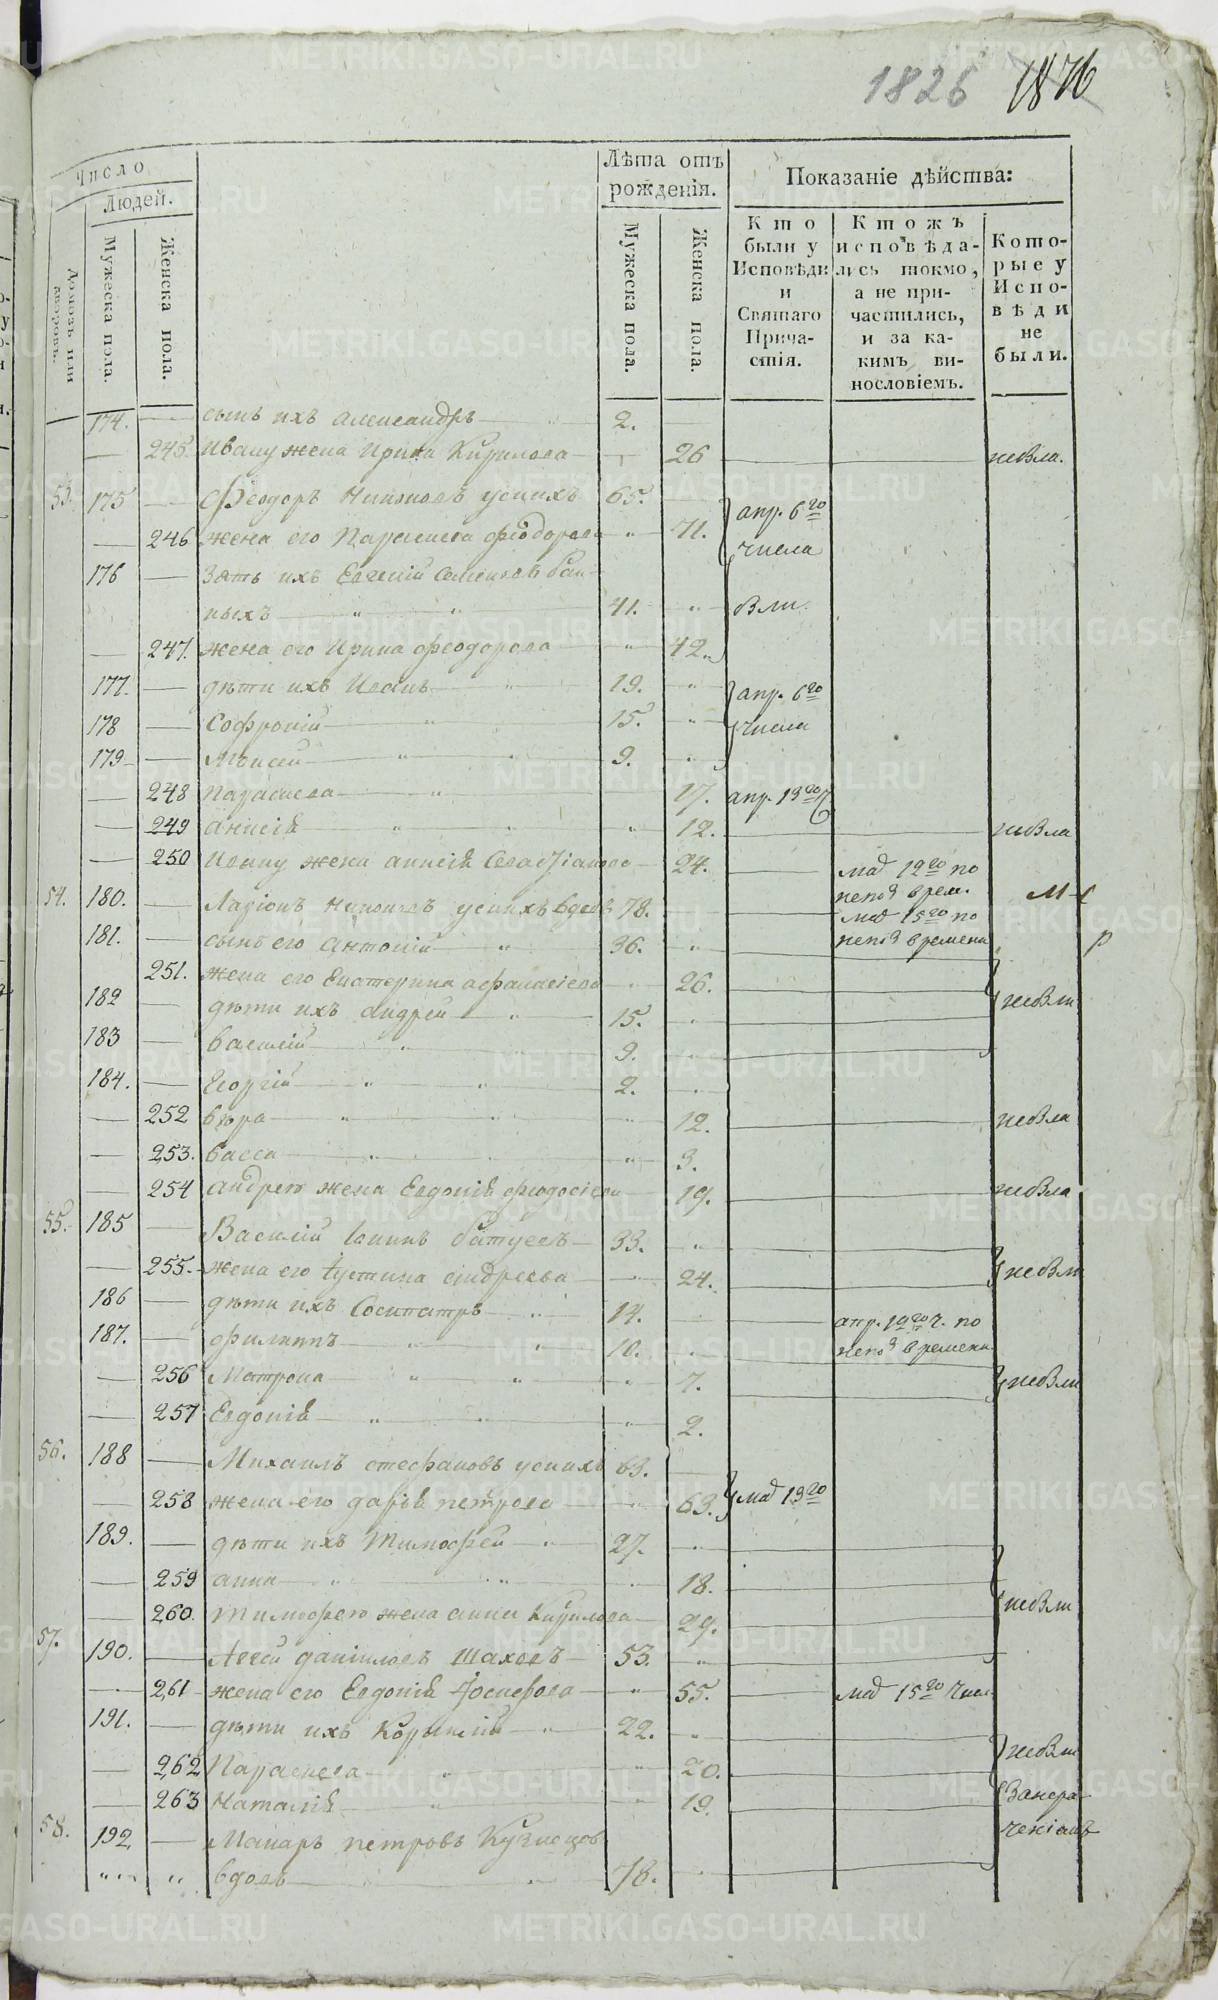 1826 1876
Число
Людей.
Домовъ или дворовъ.
Мужеска пола.
Женска пола.
Лѣта отъ рожденія.
Мужеска пола.
Женска пола.
Показаніе дѣйства:
Кто были у Исповѣди и Святаго Причастія.
Ктожъ исповѣдались токмо, а не причастились, и за какимъ винословіемъ.
Которые у Исповѣди не были.
174. сынъ ихъ Александръ 2.
245. Ивану жена Ирина Кирилова 26 небыла.
53. 175 Феодоръ успихъ 65. апр. 6го
246 жена его Параскева феодорова 71. числа
176 Зять ихъ Евгений
ныхъ 41. были.
247. жена его Ирина феодорова 42.
177. дѣти ихъ Иванъ 19. апр. 6го
178 Софроній 15. числа
179 Моисей 9.
248 Параскева 17. апр. 13го ч
249 Анисія 12. небыла
250 Ивану жена Анисія 24. маа 12го по
54. 180. Ларіонъ успихъ вдовъ 78. врем.
маа 15го по
181. сынъ его Антоній 36. времени
251. жена его Екатерина афанасіева 26.
182 дѣти ихъ Андрей 15. небыли
183 Василій 9.
184. Георгій 2.
252 вѣра 12. небыла
253. васса 3.
254 Андрею жена Евдокія феодосіева 19. небыла
55. 185 Василій батуевъ 33.
255. жена его Іустина андреева 24. небыли
186 дѣти ихъ Сосипатръ 14. апр. 19го ч. по
187. филиппъ 10. времени
256 Матрона 7. небыли
257 Евдокія 2.
56. 188 Михаилъ стефановъ успихъ 63.
258 жена его дарія петрова 63. маа 13го
189. дѣти ихъ Тимофей 27.
259 анна 18.
260. Тимофею жена анна Кирилова 29. небыли
57. 190. даниловъ Шаховъ 53.
261 жена его Евдокія Іосифова 55. маа 15го числ.
191. дѣти ихъ 22.
262 Параскева 20. небыли
263 Наталія 19. Занера
58. 192 Макаръ петровъ Кузнецовъ ченіемъ
вдовъ 78.
METRIKI.GASO-URAL.RU